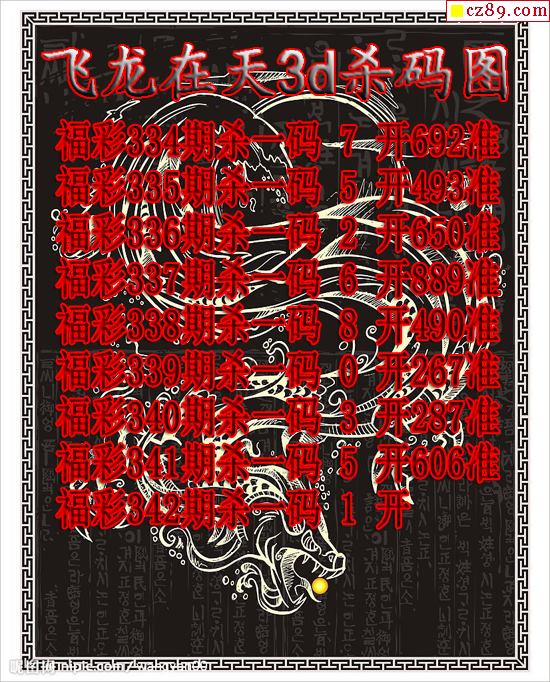 cz89.com
飞龙在天3d杀码图
福彩334期杀一码 7 开692准
福彩335期杀一码 5 开493准
福彩336期杀一码 2 开650准
福彩337期杀一码 6 开889准
福彩338期杀一码 8 开490准
福彩339期杀一码 0 开267准
福彩340期杀一码 3 开287准
福彩341期杀一码 5 开606准
福彩342期杀一码 1 开